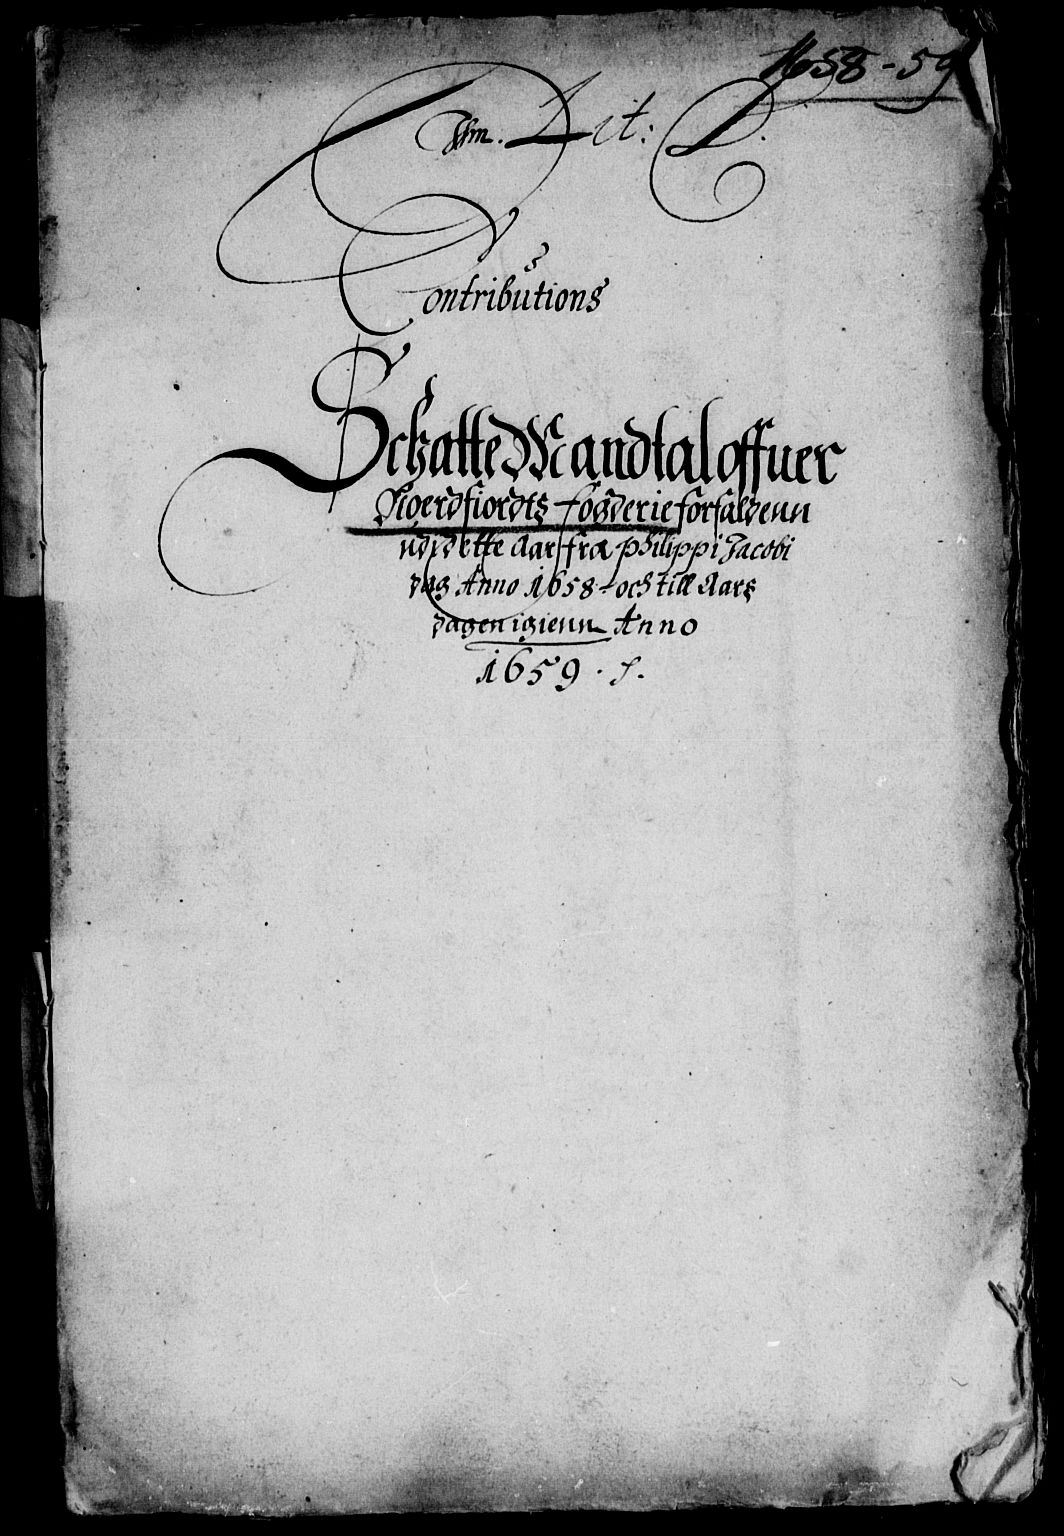 1658-59
Lit: D.
Contributions
Schatte Mandtal offuer
Noerdfiordts fogderie forfaldenn
udj dette Aar fra philippi Jacobi
dag Anno 1658 och till Aars
dagen igienn Anno
1659.